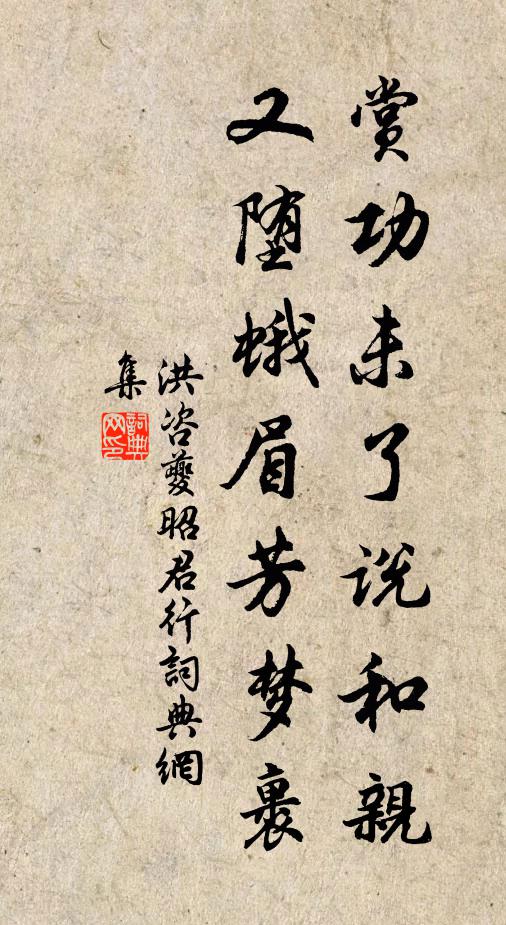 賞功未了说和親
又堕蛾眉芳梦裏
洪咨夔昭君行詞典網
集
詞典网印